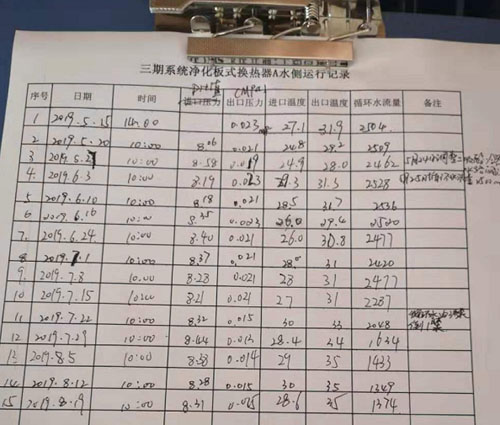 三期系统净化板式换热器A水侧运行记录
(MPa)
序号 日期 时间 进口压力 出口压力 进口温度 出口温度 循环水流量 备注
1 2019.5.15 14:00 0.023 27.1 31.9 2504
2 2019.5.20 10:00 8.06 0.021 24.8 28.2 2509
3 2019.5.27 10:00 8.58 0.019 24.9 28.0 2462
4. 2019.6.3 10:00 8.19 0.023 28.3 31.5 2528
5 2019.6.10 10:00 8.18 0.021 28.5 31.7 2536
6 2019.6.16 10:00 8.35 0.023 26.0 29.4 2520
7. 2019.6.24 10:00 8.40 0.021 26.0 30.8 2477
8 2019.7.1 10:00 8.37 0.021 28.0 31 2420
9. 2019.7.8 10:00 8.23 0.021 28 31 2477
10 2019.7.15 10:00 8.21 0.021 27 31 2287
11 2019.7.22 10:00 8.32 0.015 30 33 2048
12 2019.7.29 10:00 8.44 0.013 28.4 34 1634
13 2019.8.5 10:00 8.38 0.014 29 35 1433
14 2019.8.12 10:00 8.28 0.015 30 35 1349
15 2019.8.19 10:00 8.31 0.015 28.6 35 1374